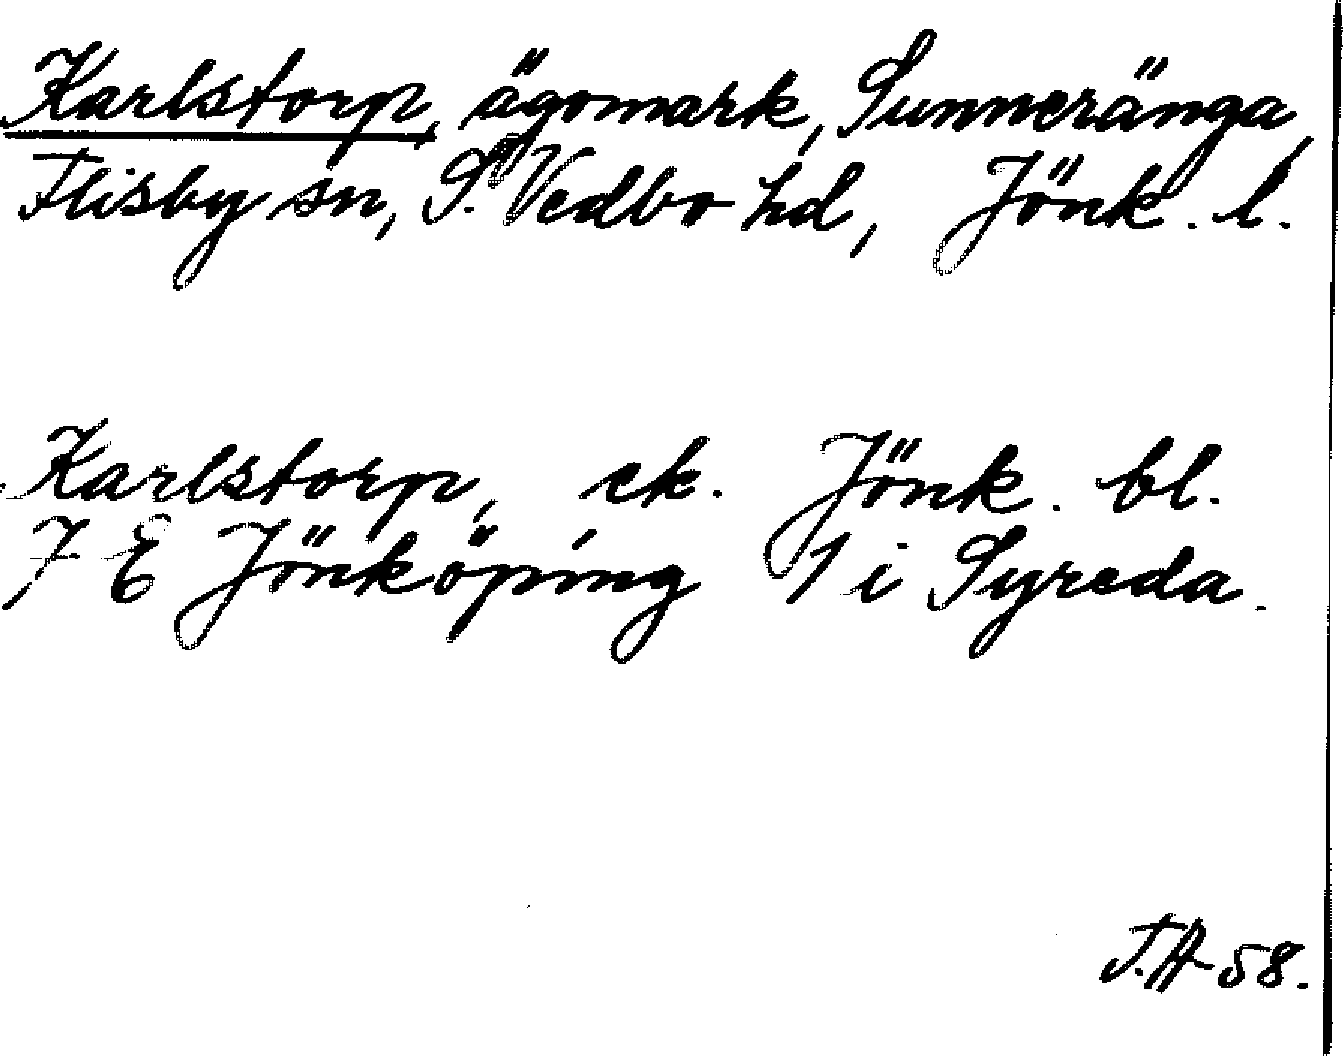 Karlstorp, ägomark, Sunneränga,
Flisby sn, S. Vedbo hd, Jönk. l.
Karlstorp, ek. Jönk. bl.
7 E Jönköping 1 i Syreda.
T.A-58.